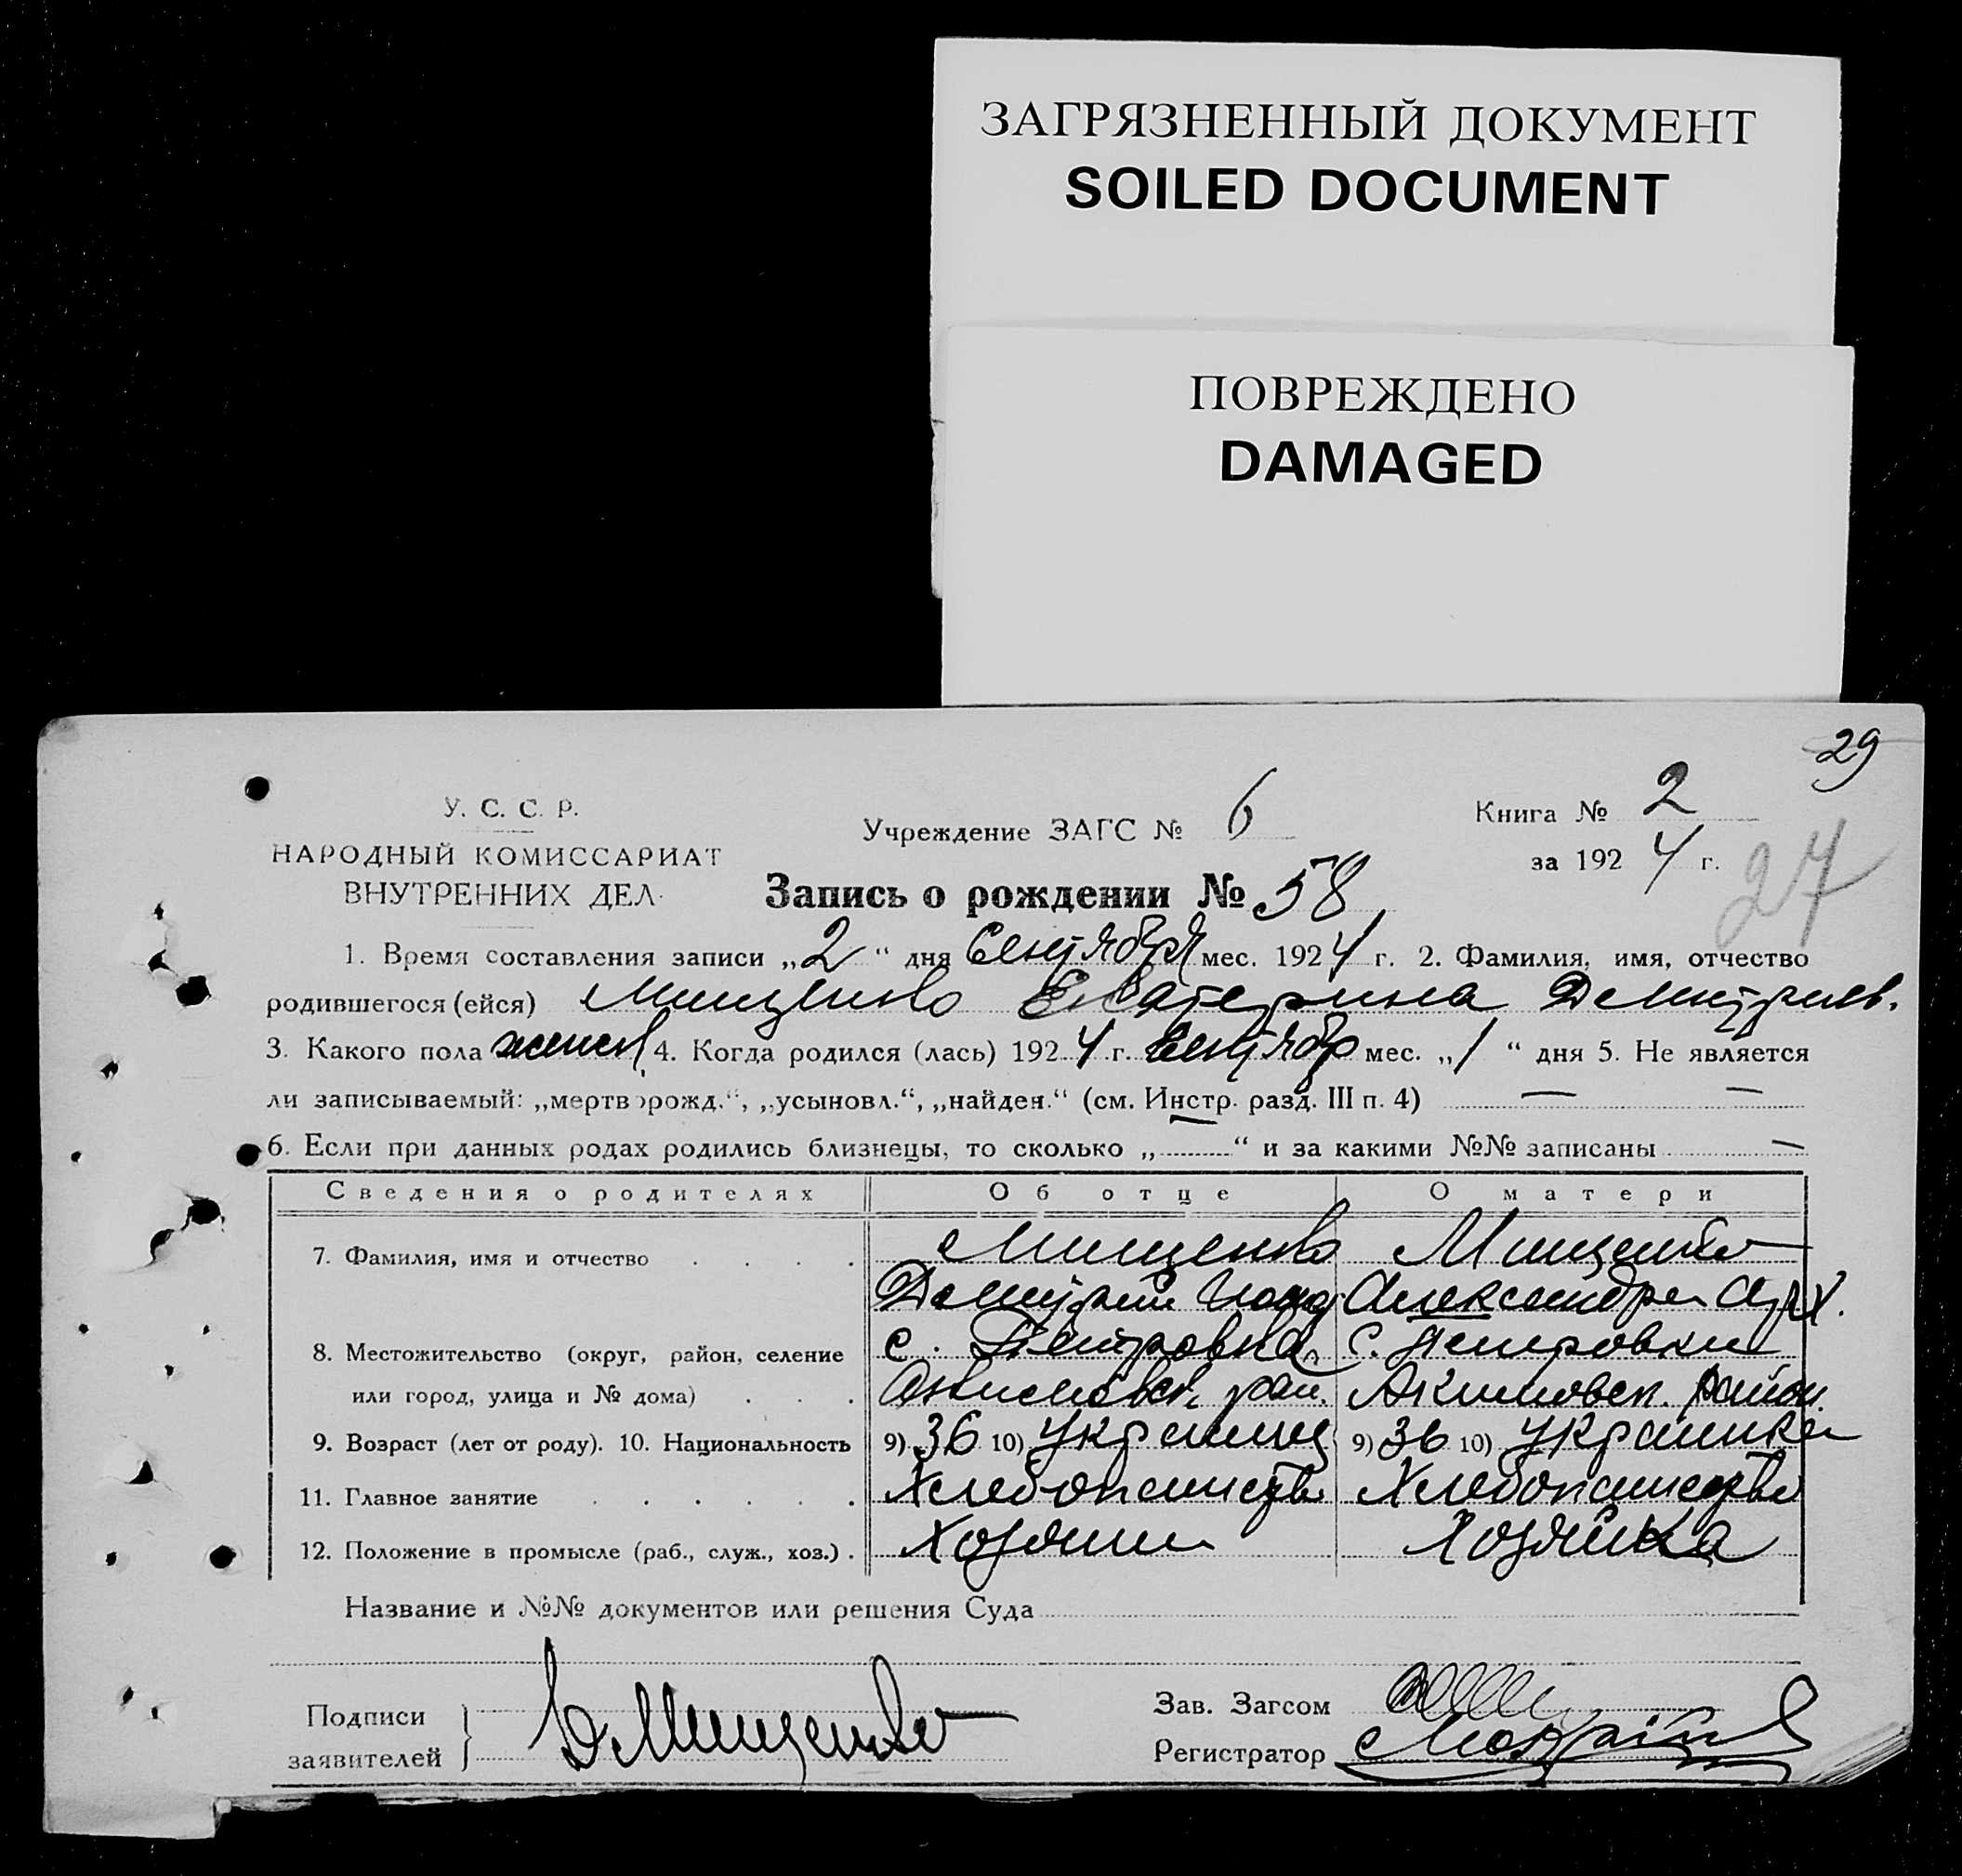 ЗАГРЯЗНЕННЫЙ ДОКУМЕНТ
SOILED DOCUMENT
ПОВРЕЖДЕНО
DAMAGED
29
У. С. С. Р.
НАРОДНЫЙ КОМИССАРИАТ
ВНУТРЕННИХ ДЕЛ.
Учреждение ЗАГС № 6
Книга № 2
за 1924 г.
27
Запись о рождении № 58
1. Время составления записи „2“ дня Сентября мес. 1924 г. 2. Фамилия, имя, отчество
родившегося (ейся) Мищенко Екатерина Дмитриев.
3. Какого пола женск 4. Когда родился (лась) 1924 г. Сентябр мес. „1“ дня 5. Не является
ли записываемый: „мертворожд.“, „усыновл.“, „найден.“ (см. Инстр. разд. III п. 4) — —
6. Если при данных родах родились близнецы, то сколько „—“ и за какими №№ записаны —
Сведения о родителях Об отце О матери
7. Фамилия, имя и отчество . . . . Мищенко Мищенко
Дмитрий Александра
8. Местожительство (округ, район, селение с. Петровка с. Петровки
или город, улица и № дома) . . . Акимовск. рай. Акимовск. район.
9. Возраст (лет от роду). 10. Национальность 9) 36 10) Украинец 9) 36 10) Украинка
11. Главное занятие . . . . . . Хлебопашество Хлебопашество
12. Положение в промысле (раб., служ., хоз.) . Хозяин Хозяйка
Название и №№ документов или решения Суда
Подписи
заявителей
Д Мищенко
Зав. Загсом
Регистратор